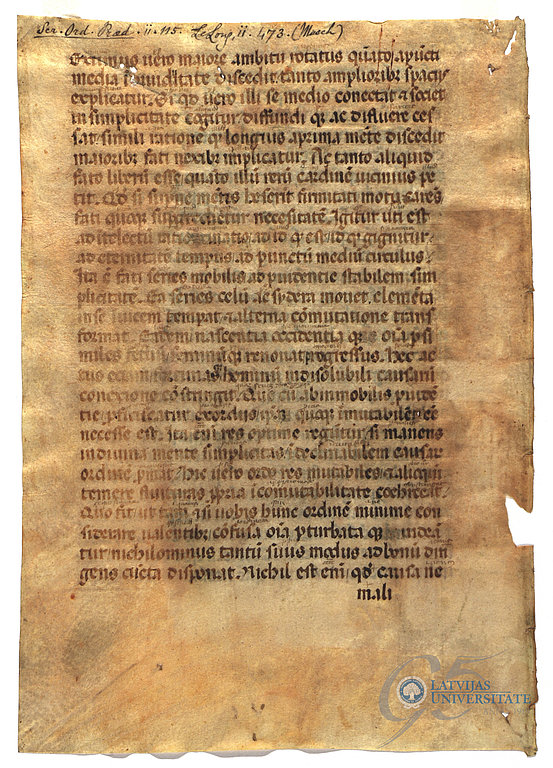 Scr. Ord. Præd. ii. 115. Le Long, ii. 473. (Mosch)
Extimus ṽo maiore ambitu rotatus quãto a pũcti
media ĩdiuiduitate discedit tanto ampliorib₂ spacijs
explicatur. Si qd̃ ṽo illi se medio conectat ⁊ societ
in simplicitatẽ cogitur diffundi q₂ ac difluere ces
sat. simili ratione qd̃ longius a prima mẽte discedit
maiorib₂ fati nexib₂ implicatur. Ac tanto aliquid
fato liberũ esse quãto illũ rerũ cardinẽ vicinius pe
tit. Qd̃ si supne mẽtis heserit firmitati motu carẽs
fati quoq₂ supgreditur necessitatẽ. Igitur uti est
ad ĩtelectũ ratiocinatio, ad id qd̃ est id qd̃ gignitur.
ad eternitatẽ tempus ad punctũ mediũ circulus.
Ita ẽ fati series mobilis ad puidentie stabilem sim
plicitatẽ. Ea series celũ ac sydera mouet, elemẽta
in se inuicem temperat ⁊ alterna cõmutatione trans
format. Eadem nascentia occidentia q₂ oĩa p si
miles fetuũ seminũq₂ renouat progressus. Hec ac
tus eciam fortunasq₂ hominũ indisolubili causarũ
conexione cõstringit. Que cũ ab inmobilis puidẽ
tie pficiscatur exordijs ipsas quoq₂ imutabiles eẽ
necesse est. Ita eni res optime regũtur si manens
in diuina mente simplicitas ĩdeclinabilem causar
ordinẽ pmat. Hic ṽo ordo res mutabiles ⁊ alioqui
temere fluituras ppria ĩcomutabilitate coherceat.
Quo fit ut tam̃ si uobis hunc ordinẽ minime con
siderare valentib₂ cõfusa oĩa pturbata q₂ uideã
tur nichilominus tantũ suus modus ad bonũ diri
gens cũcta disponat. Nichil est enĩ qd̃ causa ne
mali
95
LATVIJAS
UNIVERSITATE